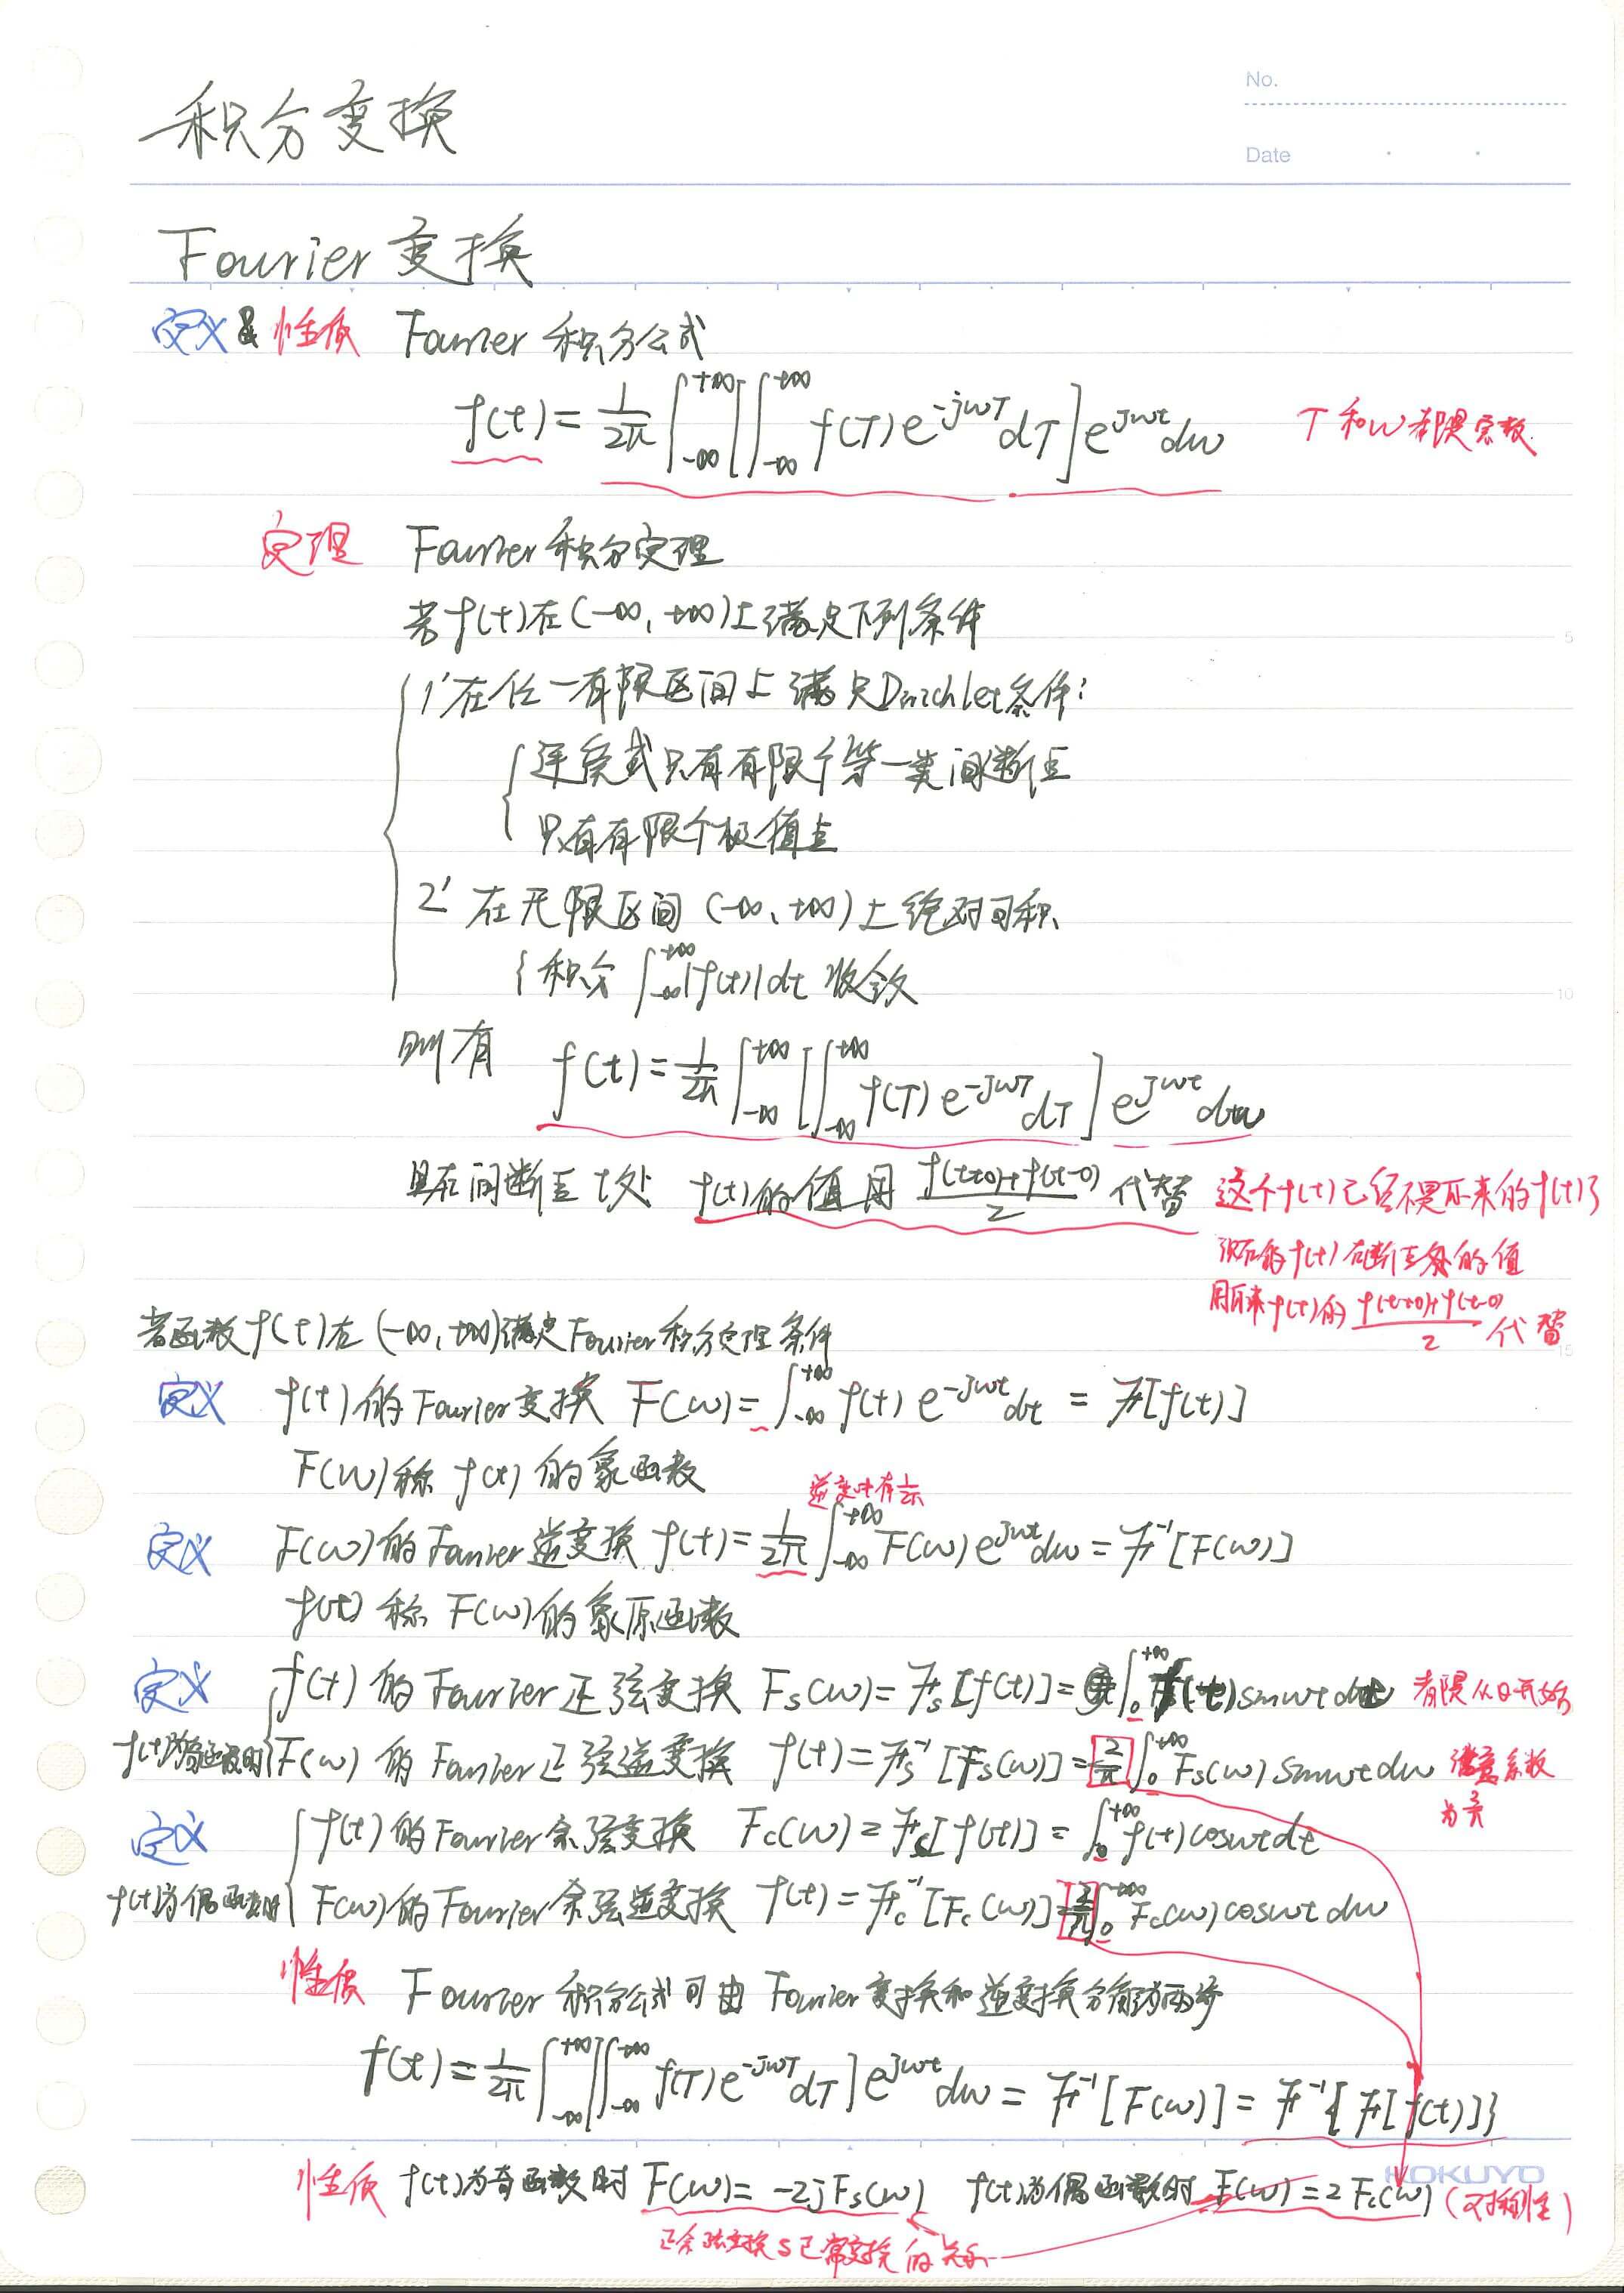 积分变换
No.
Date
Fourier 变换
定义 & 性质 Fourier 积分公式
f(t) = 1/2π ∫_{-∞}^{+∞} [∫_{-∞}^{+∞} f(τ) e^{-jωτ} dτ] e^{jωt} dω τ和ω都是实数.
定理 Fourier 积分定理
若 f(t) 在 (-∞, +∞) 上满足下列条件
1' 在任一有限区间上满足 Dirichlet 条件:
连续或只有有限个第一类间断点
只有有限个极值点
2' 在无限区间 (-∞, +∞) 上绝对可积
积分 ∫_{-∞}^{+∞} |f(t)| dt 收敛
则有 f(t) = 1/2π ∫_{-∞}^{+∞} [∫_{-∞}^{+∞} f(τ) e^{-jωτ} dτ] e^{jωt} dω
且在间断点 t 处 f(t) 的值用 (f(t+0)+f(t-0))/2 代替 这个f(t)已经不是原来的f(t)了
f(t) 在断点处的值
用原来f(t)的 (f(t+0)+f(t-0))/2 代替
若函数 f(t) 在 (-∞, +∞) 满足 Fourier 积分定理条件
定义 f(t) 的 Fourier 变换 F(ω) = ∫_{-∞}^{+∞} f(t) e^{-jωt} dt = ℱ[f(t)]
F(ω) 称 f(t) 的象函数
逆变中有 1/2π
定义 F(ω) 的 Fourier 逆变换 f(t) = 1/2π ∫_{-∞}^{+∞} F(ω) e^{jωt} dω = ℱ⁻¹[F(ω)]
f(t) 称 F(ω) 的象原函数
定义 f(t) 的 Fourier 正弦变换 Fs(ω) = ℱs[f(t)] = ∫_0^{+∞} f(t) sinωt dt 都是从0开始
f(t)为奇函数时 F(ω) 的 Fourier 正弦逆变换 f(t) = ℱs⁻¹[Fs(ω)] = 2/π ∫_0^{+∞} Fs(ω) sinωt dω 注意系数
为 2/π
定义 f(t) 的 Fourier 余弦变换 Fc(ω) = ℱc[f(t)] = ∫_0^{+∞} f(t) cosωt dt
f(t)为偶函数时 F(ω) 的 Fourier 余弦逆变换 f(t) = ℱc⁻¹[Fc(ω)] = 2/π ∫_0^{+∞} Fc(ω) cosωt dω
性质 Fourier 积分公式可由 Fourier 变换和逆变换分为两步
f(t) = 1/2π ∫_{-∞}^{+∞} [∫_{-∞}^{+∞} f(τ) e^{-jωτ} dτ] e^{jωt} dω = ℱ⁻¹[F(ω)] = ℱ⁻¹{ℱ[f(t)]}
KOKUYO
性质 f(t)为奇函数时 F(ω) = -2jFs(ω) f(t)为偶函数时 F(ω) = 2Fc(ω) (对称性)
正余弦变换与正常变换的关系
5
10
15